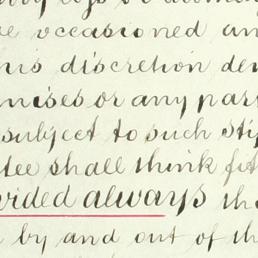 occasioned an
his discretion de
mises or any part
subject to such sti
tee shall think fit
vided always th
by and out of th